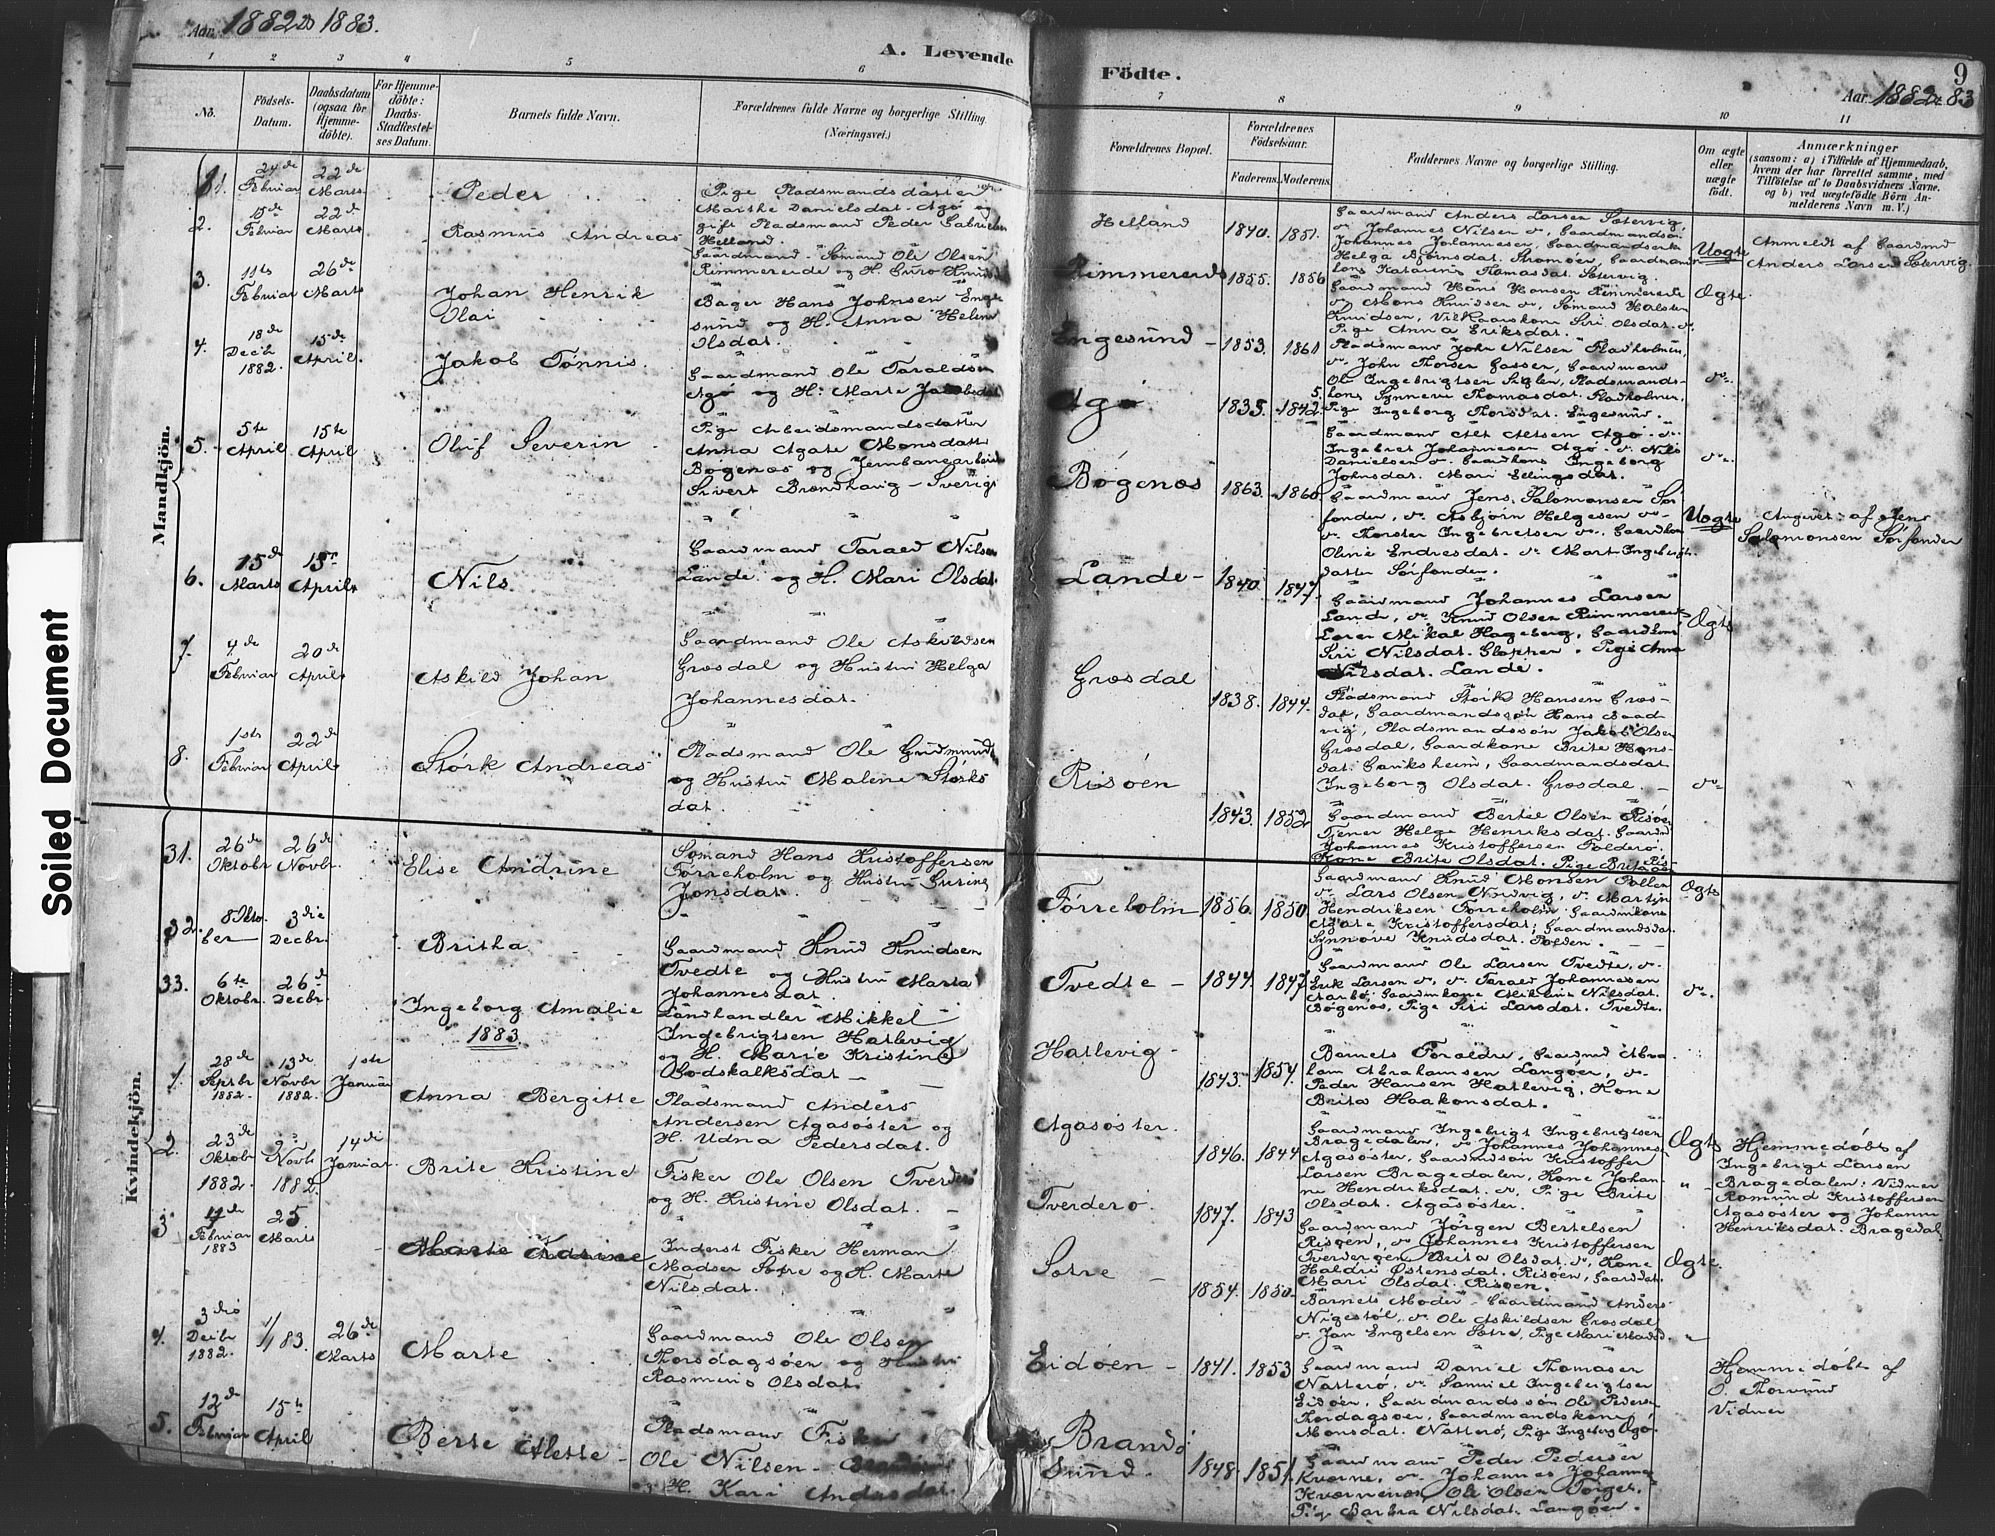 Aar 1882 & 1883.
A. Levende
Födte.
9
Aar 1882 & 83
1 2 3 4 5 6
7 8 9 10 11
No.
Födsels-
Datum.
Daabsdatum
(ogsaa for
Hjemme-
döbte).
For Hjemme-
döbte:
Daabs-
Stadfæstel-
ses Datum.
Barnets fulde Navn.
Forældrenes fulde Navne og borgerlige Stilling.
(Næringsvei.)
Forældrenes Bopæl.
Forældrenes
Födselsaar.
Faderens. Moderens.
Faddernes Navne og borgerlige Stilling.
Om ægte
eller
uægte
födt.
Anmærkninger
(saasom: a) i Tilfælde af Hjemmedaab,
hvem der har forrettet samme, med
Tilföielse af to Daabsvidners Navne,
og b) ved uægtefödte Börn An-
melderens Navn m. V.)
Mandkjön.
1. 24de Februar 22de Marts
Peder
Pige Pladsmandsdatter
Marthe Danielsdat. Agø og
gift Pladsmand Peder Gabrielsen
Helland.
Helland 1840. 1851.
Gaardmand Anders Larsen Sætervig,
Uægte
Anmeldt af Gaardmd
Anders Larsen Sætervig.
2. 15de Februar 22de Marts
Rasmus Andreas
Gaardmand - Sømand Ole Olsen
Rimmereide og H. Guro Knudsd
Rimmereide 1855. 1856
Gaardmand Hans Hansen Rimmereide
do Mons Knudsen do, Sømand Halsten
Knudsen, Vikaarskone Siri Olsdat. do
Pige Anna Eriksdat.
Ægte.
3. 11te Februar 26de Marts
Johan Henrik
Olai
Bager Hans Johnsen Enge
sund og H. Anna Helene
Olsdat.
Engesund - 1853. 1861
Pladsmand John Nilsen Fladholmen,
do John Thorsen Gassen, Gaardmand
Ole Ingebrigtsen Siglen, Pladsmands-
kone Synneve Thomasdat. Fladholmen,
Pige Ingeborg Thorsdat. Engesund.
do
4. 18de Decbr 1882. 15de April.
Jakob Tønnis.
Gaardmand Ole Taraldsen
Agø og H. Marte Jakobsdat
Agø 1835. 1842.
Gaardmand Alt Altsen Agø. do
Ingebret Johannesen Agø. do Nils
Danielsen do Gaardkone Ingeborg
Johnsdat. Mari Ellingsdat.
do
5. 5te April 15te April
Oluf Severin
Pige Arbeidsmandsdatter
Anna Agate Monsdatt
Bøgenæs og Jernbanearbeider
Sivert Brændhaug - Sverige
Bøgenæs 1863. 1860.
Gaardmand Jens Salomonsen Sør-
fonden, do Asbjørn Helgesen do
do Thorster Ingebretsen do, Gaardkone
Oline Endresdat. do Mart Ingebrigt-
datter Sørfonden.
Uægte
Angivet af Jens
Salomonsen Sørfonden
6. 15de Marts 15de April
Nils.
Gaardmand Tarald Nilsen
Lande og H. Mari Olsdat.
Lande - 1840 1847.
Gaardmand Johannes Larsen
Lande, do Knud Olsen Rimmereide,
Lærer Mikal Hageberg, Gaardkone
Siri Nilsdat. Glopper. Pige Anna
Nilsdat. Lande.
Ægte
7. 4de Februar 20de April
Askild Johan
Gaardmand Ole Askildsen
Græsdal og Hustru Helga
Johannesdat.
Græsdal 1838. 1844.
Pladsmand Størk Hansen Græs-
dal, Gaardmandssøn Hans Baad-
vig, Pladsmandssøn Jakob Olsen
Græsdal, Gaardkone Brite Hans-
dat. Gauksheim, Gaardmandsdat
Ingeborg Olsdat. Græsdal. -
do
8. 1ste Februar 22de April
Størk Andreas
Pladsmand Ole Gudmunds
og Hustru Malene Størks
dat.
Risøen 1843. 1852
Gaardmand Bertel Olsen Risøen
Tjener Helge Henriksdat. Gaardmd
Johannes Kristoffersen Folderø.
Kone Brite Olsdat. Pige Brite
Kvindekjön.
31. 26de Oktobr 26de Novbr.
Elise Andrine
Sømand Hans Kristoffersen
Førreholm og Hustru Gurine
Jonsdat.
Førreholm 1856. 1850
Gaardmand Knud Monsen Pollen
do Lars Olsen Nordvig, do Martin
Hendriksen Førreholm Gaardmkone
Agate Kristoffersdat; Gaardmandsdat.
Synnøve Knudsdat. Folden.
Ægte
32. 8 Okto-ber 3die Decbr.
Britha
Gaardmand Knud Knudsen
Tvedte og Hustru Marta
Johannesdat.
Tvedte - 1844. 1847
Gaardmand Ole Larsen Tvedte, do
Erik Larsen do, do Tarald Johannesen
Aarbø, Gaardmkone Mikline Nilsdat.
Bøgenæs, Pige Siri Larsdat. Tvedte.
do
33. 6te Oktobr. 26de Decbr.
Ingeborg Amalie
Landhandler Mikkel
Ingebrigtsen Hatlevig
og H. Marie Kristine
Bodskalksdat -
Hatlevig - 1843. 1854.
Barnets Forældre, Gaardmd Abra-
ham Abrahamsen Langøen, do
Peder Hansen Hatlevig, Kone
Brita Haakonsdat.
1883
1. 28de Septbr 1882 13de Novbr 1882. 1ste Januar
Anna Bergitte
Pladsmand Anders
Andersen Agasøster og
H. Udna Pedersdat.
Agasøster. 1846. 1844
Gaardmand Ingebrigt Ingebrigtsen
Bragedalen, do Johannes Johannes-
Agasøster, Gaardmdsøn Kristoffer
Larsen Bragedalen, Kone Johan-
ne Hendriksdat. do, Pige Brite
Olsdat. Agasøster.
Ægte
Hjemmedøbt af
Ingebrigt Larsen
Bragedalen: Vidner
Rasmund Kristoffersen
Agasøster og Johanne
Henriksdat. Bragedal.
2. 23de Oktobr 1882 Novb 1882. 14de Januar
Brite Kristine
Fisker Ole Olsen Tverderø
og H. Kristine Olsdat. -
Tverderø. 1847. 1843
Gaardmand Jørgen Bertelsen
Risøen, do Johannes Kristoffersen
Tverdergen Brita Olsdat. do, Kone
Haldri Østensdat. Risøen, Gaarddat.
Mari Olsdat. Risøen.
"
3 Februar 1883 25 Marts
Marte
Inderst Fisker Herman
Madsen Sætre og H. Marte
Nilsdat.
Sætre - 1854. 1850.
Barnets Moder - Gaardmand Anders
Nigestøl, do Ole Askildsen Græsdal
do Jan Engelsen Sætre, Pige Marie Madsd.
Ægte.
4. 3die Decbr 1882. 1/1 83. 26de Marts
Marte
Gaardmand Ole Olsen
Thorsdagsøen og Hustru
Rasmine Olsdat.
Eidøen - 1841. 1853
Gaardmand Daniel Thomasen
Natterø. do Samuel Ingebrigtsen
Eidøen, Gaardmandssøn Ole Pedersen
Thordagsøen, Gaardmandskone
Monsdat. Natterø, Pige Ingeborg Agø.
"
Hjemmedøbt af
O. Thorsund
Vidner
5. 12de Februar 15de April
Berte Alette -
Pladsmand Fisker
Ole Nilsen - Brandøsund
og H. Kari Andersdat.
Brandø-
sund. 1848. 1851.
Gaardmand Peder Pedersen
Kværne, do Johannes Johannes
Kværnenæs, Ole Olsen Torget,
Pige Barbra Nilsdat. Langøen.
Soiled Document